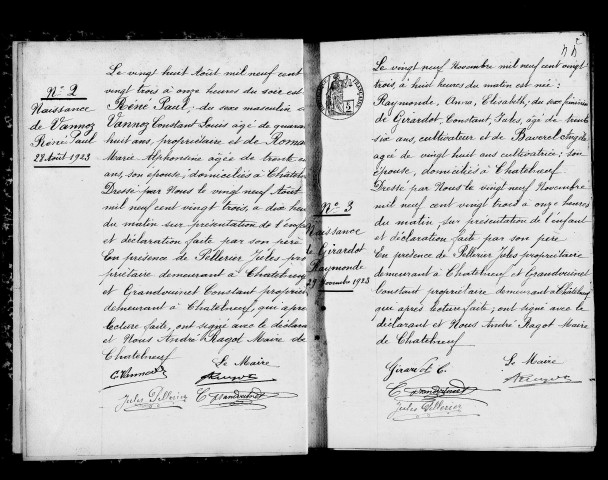 Nº 2
Naissance
de Vannoz
Réné Paul
28 Août 1923
Le vingt huit Août mil neuf cent
vingt trois à onze heures du soir est
Réné Paul, du sexe masculin
Vannoz Constant Louis âgé de
huit ans, propriétaire et de
Marie Alphonsine âgée de trente
ans, son épouse, domiciliés à
Dressé par Nous le vingt neuf Août
mil neuf cent vingt trois, à dix
du matin sur présentation de
et déclaration faite par son père
En présence de Pellerier Jules pro
priétaire demeurant à Chatelneuf
et Grandvuinet Constant
demeurant à Chatelneuf, qui
lecture faite, ont signé avec le
et Nous André Ragot Maire de
Chatelneuf
Le Maire
Jules Pellerier
Nº 3
Naissance
de Girardot
Raymonde
29 Novembre 1923
Le vingt neuf Novembre mil neuf cent vingt
trois à huit heures du matin est née:
Raymonde, Anna, Elisabeth, du sexe féminin
de Girardot, Constant, Jules, âgé de trente
six ans, cultivateur et de Baverel
agée de vingt huit ans cultivatrice; son
épouse, domiciliés à Chatelneuf
Dressé par Nous le vingt neuf Novembre
mil neuf cent vingt trois à onze heures
du matin sur présentation de l'enfant
et déclaration faite par son père
En présence de Pellerier Jules propriétaire
demeurant à Chatelneuf et Grandvuinet
Constant propriétaire demeurant à Chatelneuf
qui après lecture faite, ont signé avec le
déclarant et Nous André Ragot Maire
de Chatelneuf
Girardot C.
Le Maire
Jules Pellerier